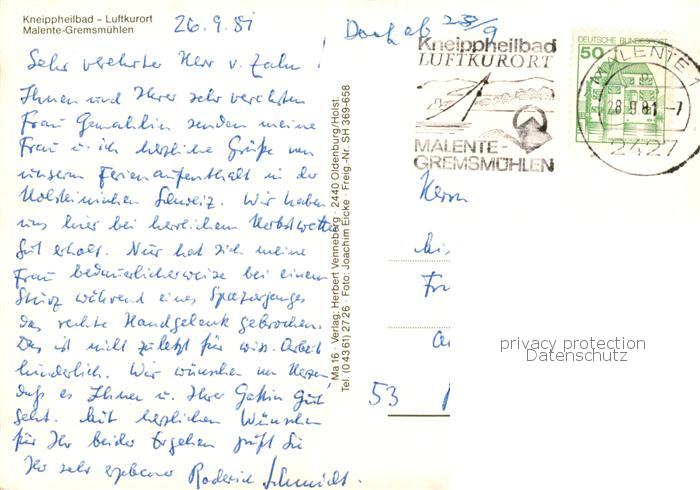 Kneippheilbad – Luftkurort
Malente-Gremsmühlen
26.9.81
Doch ab 28/9
Sehr verehrter Herr v. Zahn!
Ihnen und Ihrer sehr verehrten
Frau Gemahlin senden meine
Frau u. ich herzliche Grüße von
unserm Ferienaufenthalt in der
Holsteinischen Schweiz. Wir haben
uns hier bei herrlichem Herbstwetter
gut erholt. Nur hat sich meine
Frau bedauerlicherweise bei einem
Sturz während eines Spazierganges
das rechte Handgelenk gebrochen.
Das ist nicht zuletzt für wiss. Arbeit
hinderlich. Wir wünschen von Herzen,
daß es Ihnen u. Ihrer Gattin gut
geht. Mit herzlichen Wünschen
für Ihr beider Ergehen grüßt Sie
Ihr sehr ergebener Roderich Schmidt.
Ma 16 · Verlag: Herbert Venneberg · 2440 Oldenburg/Holst.
Tel. (0 43 61) 27 26 · Foto: Joachim Eicke · Freig.-Nr. SH 369-658
Kneippheilbad
LUFTKURORT
MALENTE-
GREMSMÜHLEN
DEUTSCHE BUNDESPOST
50
MALENTE 1
28.9.81-7
2427
Herrn
Fr
53
privacy protection
Datenschutz